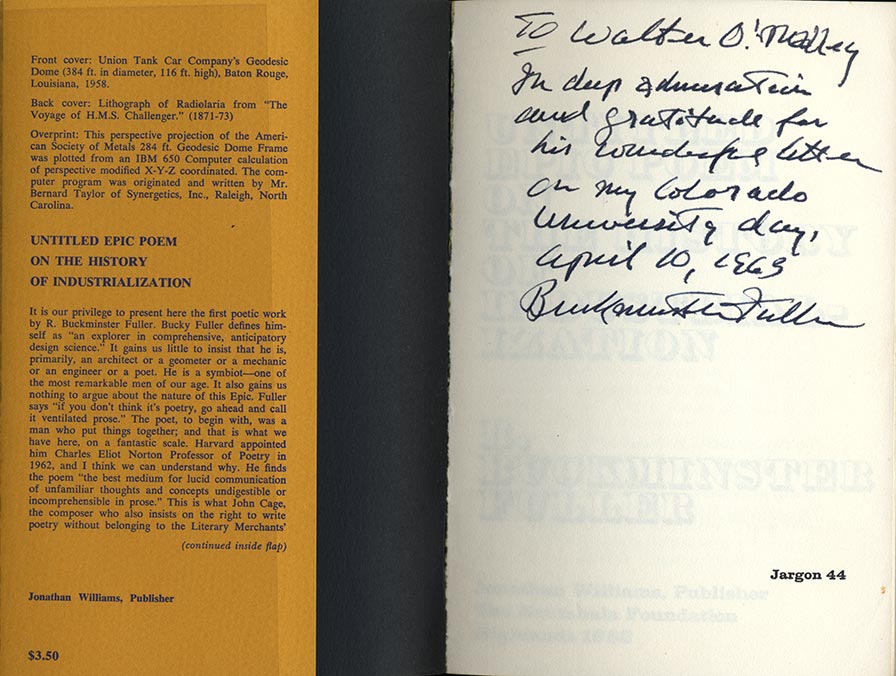 Front cover: Union Tank Car Company's Geodesic
Dome (384 ft. in diameter, 116 ft. high), Baton Rouge,
Louisiana, 1958.
Back cover: Lithograph of Radiolaria from "The
Voyage of H.M.S. Challenger." (1871-73)
Overprint: This perspective projection of the Ameri-
can Society of Metals 284 ft. Geodesic Dome Frame
was plotted from an IBM 650 Computer calculation
of perspective modified X-Y-Z coordinated. The com-
puter program was originated and written by Mr.
Bernard Taylor of Synergetics, Inc., Raleigh, North
Carolina.
UNTITLED EPIC POEM
ON THE HISTORY
OF INDUSTRIALIZATION
It is our privilege to present here the first poetic work
by R. Buckminster Fuller. Bucky Fuller defines him-
self as "an explorer in comprehensive, anticipatory
design science." It gains us little to insist that he is,
primarily, an architect or a geometer or a mechanic
or an engineer or a poet. He is a symbiot—one of
the most remarkable men of our age. It also gains us
nothing to argue about the nature of this Epic. Fuller
says "if you don't think it's poetry, go ahead and call
it ventilated prose." The poet, to begin with, was a
man who put things together; and that is what we
have here, on a fantastic scale. Harvard appointed
him Charles Eliot Norton Professor of Poetry in
1962, and I think we can understand why. He finds
the poem "the best medium for lucid communication
of unfamiliar thoughts and concepts undigestible or
incomprehensible in prose." This is what John Cage,
the composer who also insists on the right to write
poetry without belonging to the Literary Merchants'
(continued inside flap)
Jonathan Williams, Publisher
$3.50
To Walter O'Malley
In deep admiration
and gratitude for
his wonderful letter
on my Colorado
University day,
April 10, 1963
Buckminster Fuller
UNTITLED
EPIC POEM
ON
THE HISTORY
OF
INDUSTRIALI-
ZATION
by
BUCKMINSTER
FULLER
Jargon 44
Jonathan Williams, Publisher
The Nantahala Foundation
Highlands 1962